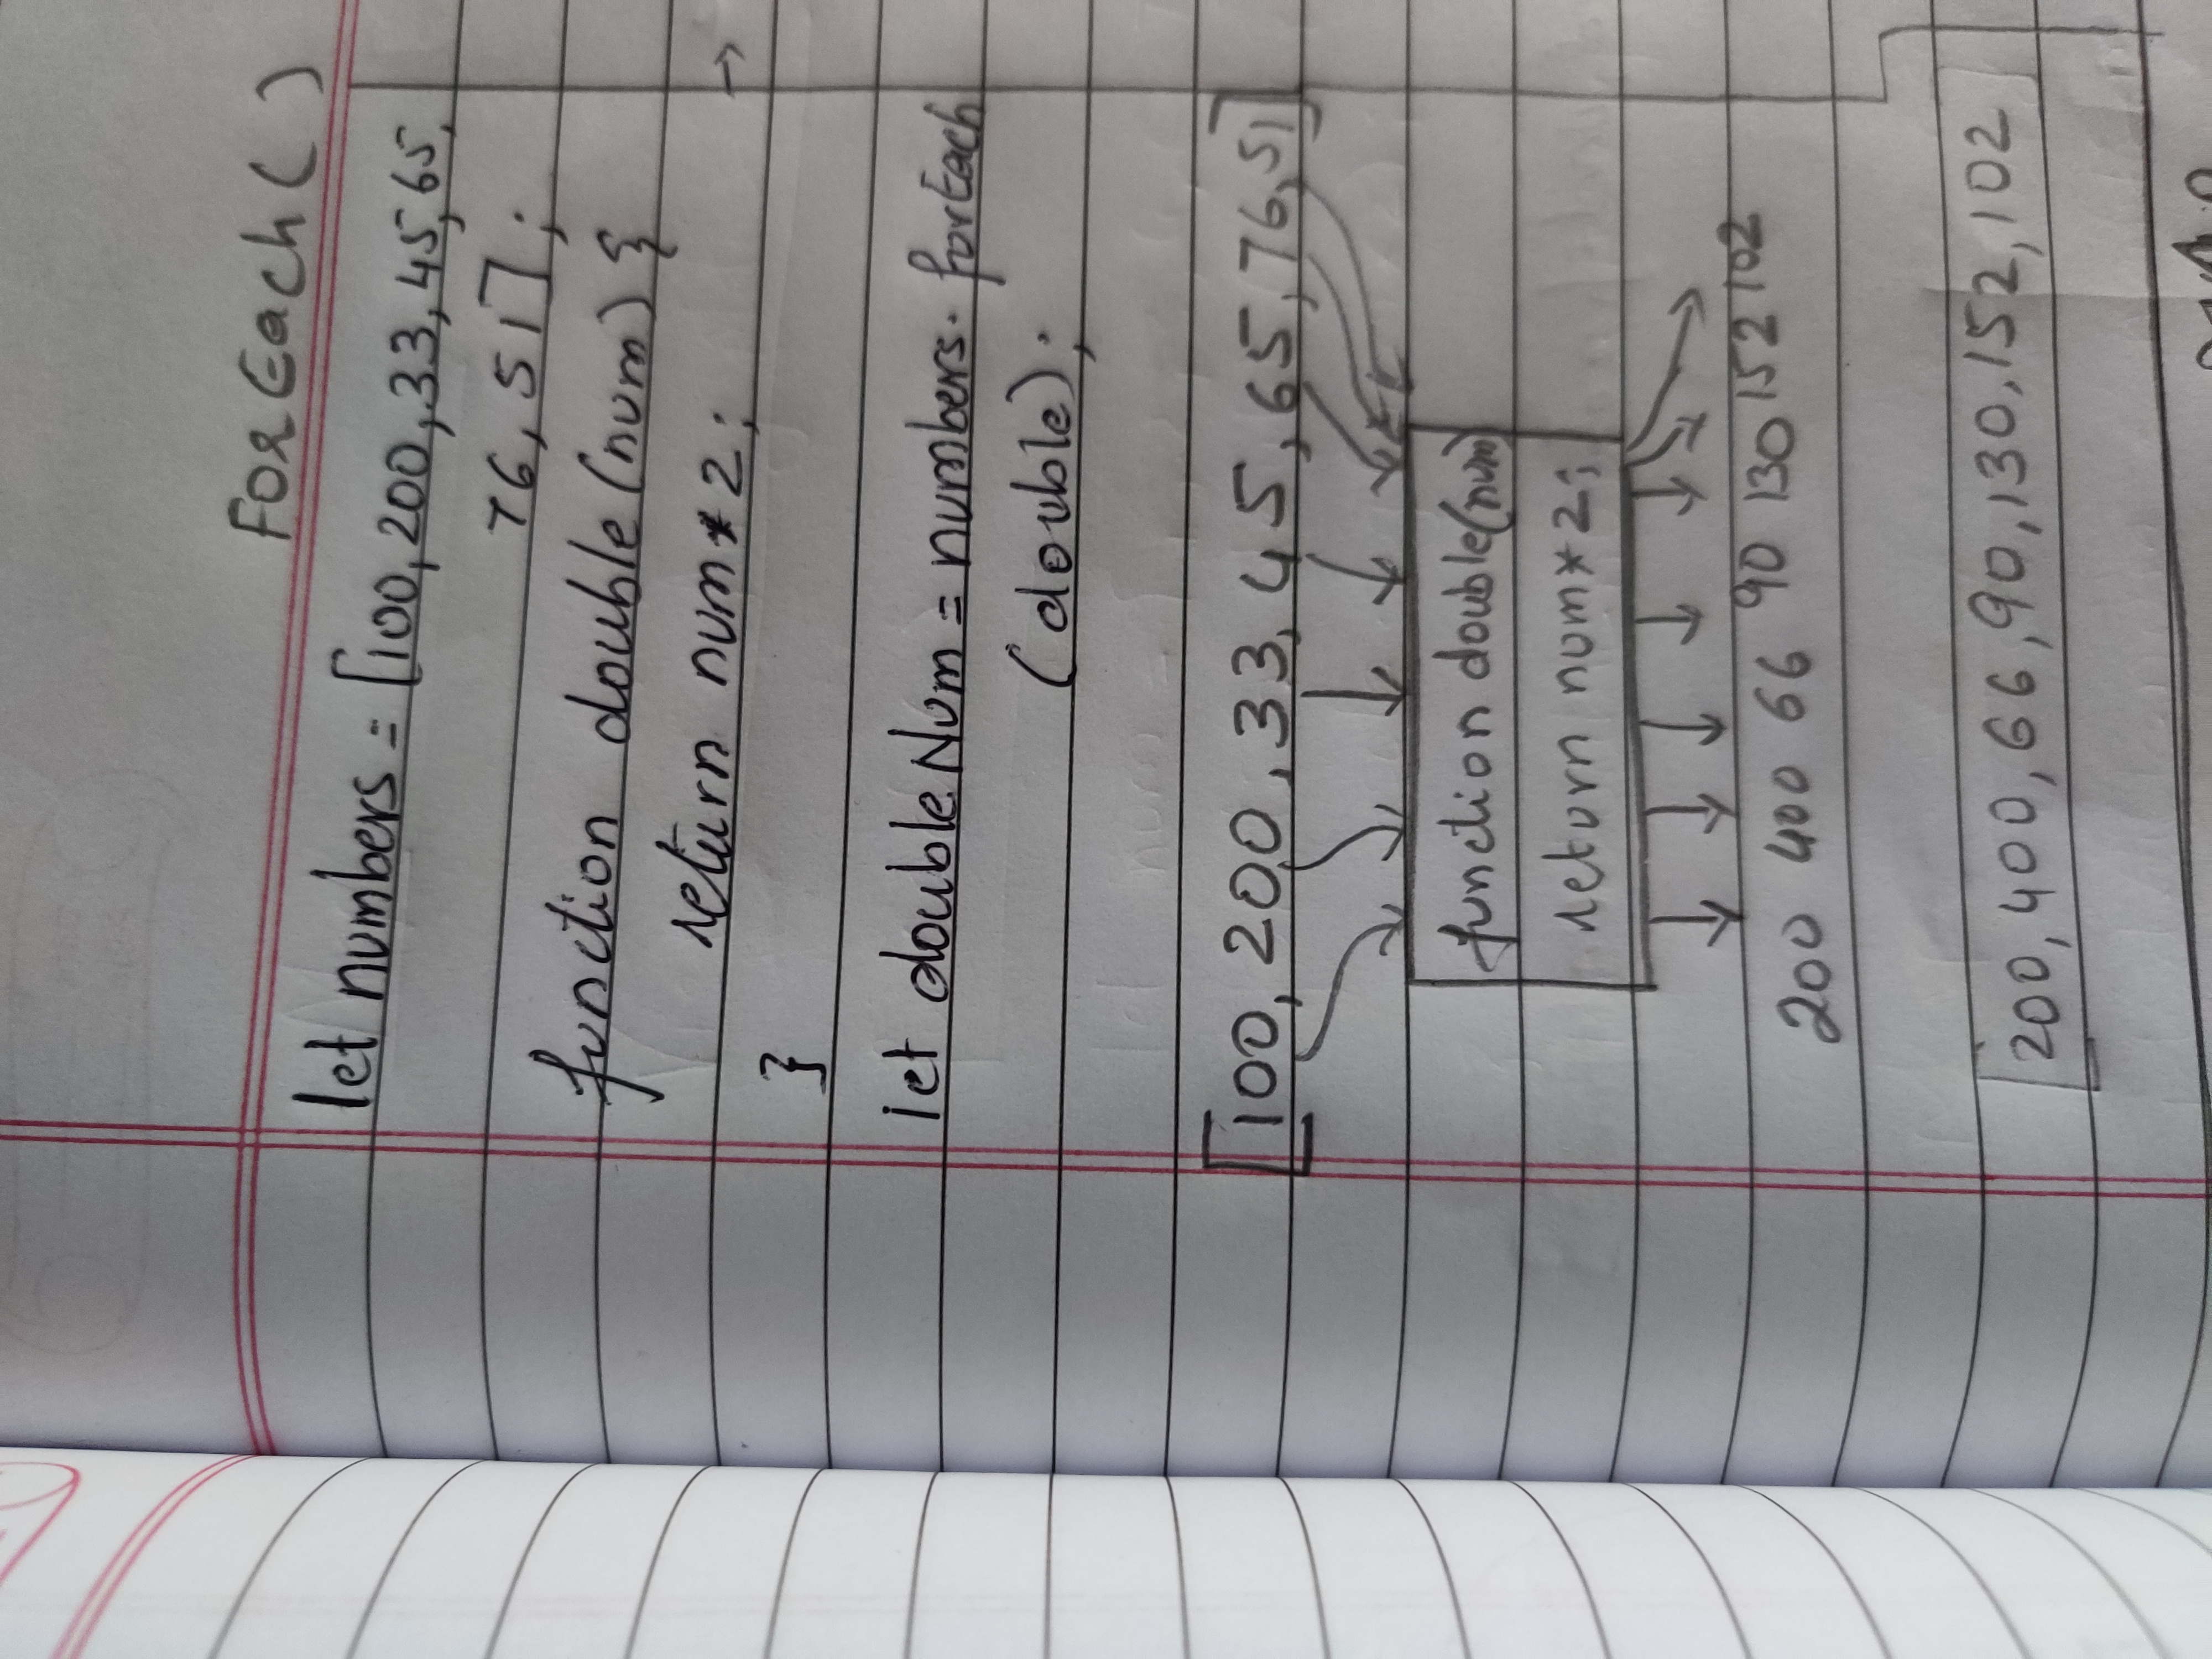 ForEach( )
let numbers = [100, 200, 33, 45, 65,
76, 51];
function double(num) {
return num*2;
}
let doubleNum = numbers.forEach
(double);
[100, 200, 33, 45, 65, 76, 51]
function double(num)
return num*2;
200 400 66 90 130 152 102
[200, 400, 66, 90, 130, 152, 102